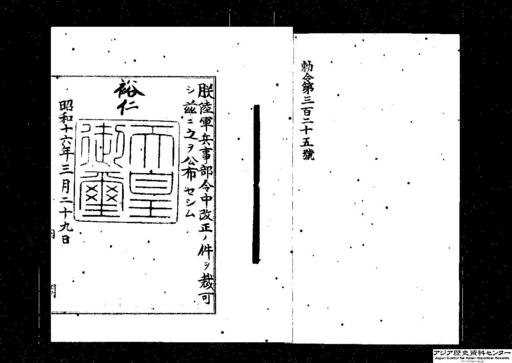 勅令第三百二十五號
朕陸軍兵事部令中改正ノ件ヲ裁可
シ茲ニ之ヲ公布セシム
裕仁
天皇
御璽
昭和十六年三月二十九日
内閣
アジア歴史資料センター
Japan Center for Asian Historical Records